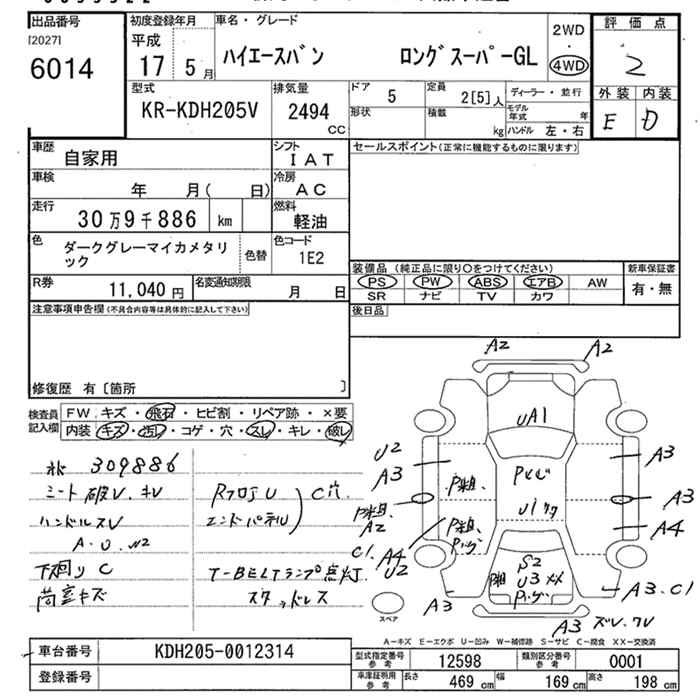 出品番号
[2027]
6014
初度登録年月
平成
17 5月
車名・グレード
ハイエースバン ロングスーパーGL
2WD
・
4WD
評価点
2
外装 内装
E D
型式
KR-KDH205V
排気量
2494
CC
ドア
5
定員
2[5]人
形状
積載
kg
ディーラー・並行
モデル年式 年
ハンドル 左・右
車歴
自家用
シフト
IAT
車検
年 月( 日)
冷房
AC
走行
30万9千886 km
燃料
軽油
色
ダークグレーマイカメタリ
ック
色替
色コード
1E2
R券
11,040円
名変通知期限
月 日
セールスポイント(正常に機能するものに限ります)
装備品 (純正品に限り○をつけてください)
PS PW ABS エアB AW
SR ナビ TV カワ
新車保証書
有・無
後日品
注意事項申告欄(不具合内容等は具体的に記入して下さい)
修復歴 有〔箇所 〕
検査員
記入欄
FW キズ・飛石・ヒビ割・リペア跡・×要
内装 キズ・汚れ・コゲ・穴・スレ・キレ・破レ
309886
シート破レ、キレ
ハンドルスレ
A・U、W2
下廻りC
荷室キズ
RフロアU
エンドパネル
C穴
T-BELTランプ点灯
スタッドレス
A2 A2
UA1
U2
A3
A3
A3
A2
A4
C1、A4
U2
S2
U3 XX
A3
A3、C1
A3
スペア
A-キズ E-エクボ U-凹み W-補修跡 S-サビ C-腐食 XX-交換済
車台番号
KDH205-0012314
登録番号
型式指定番号
参考
12598
類別区分番号
参考
0001
車庫証明用
参考
長さ 469cm 幅 169cm 高さ 198cm